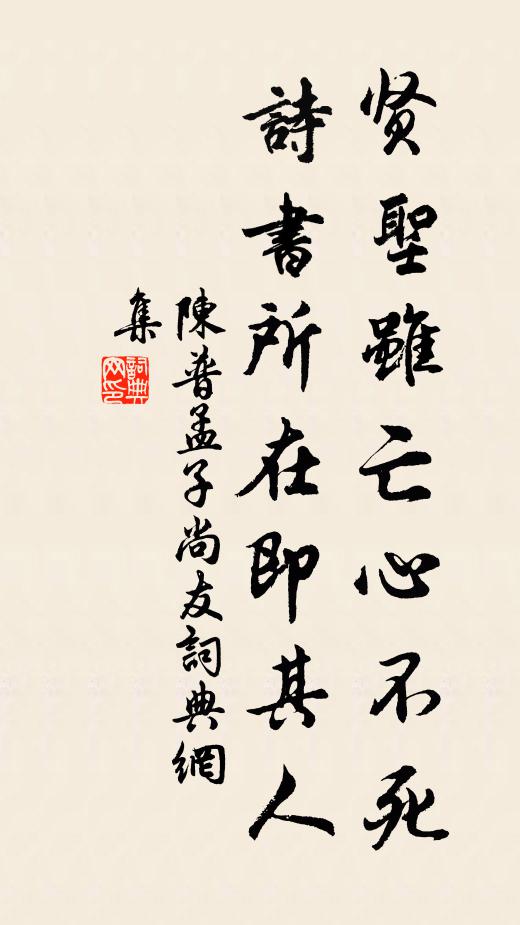 贤聖雖亡心不死
詩書所在即其人
陳普孟子尚友詞典網
集
詞典
网印